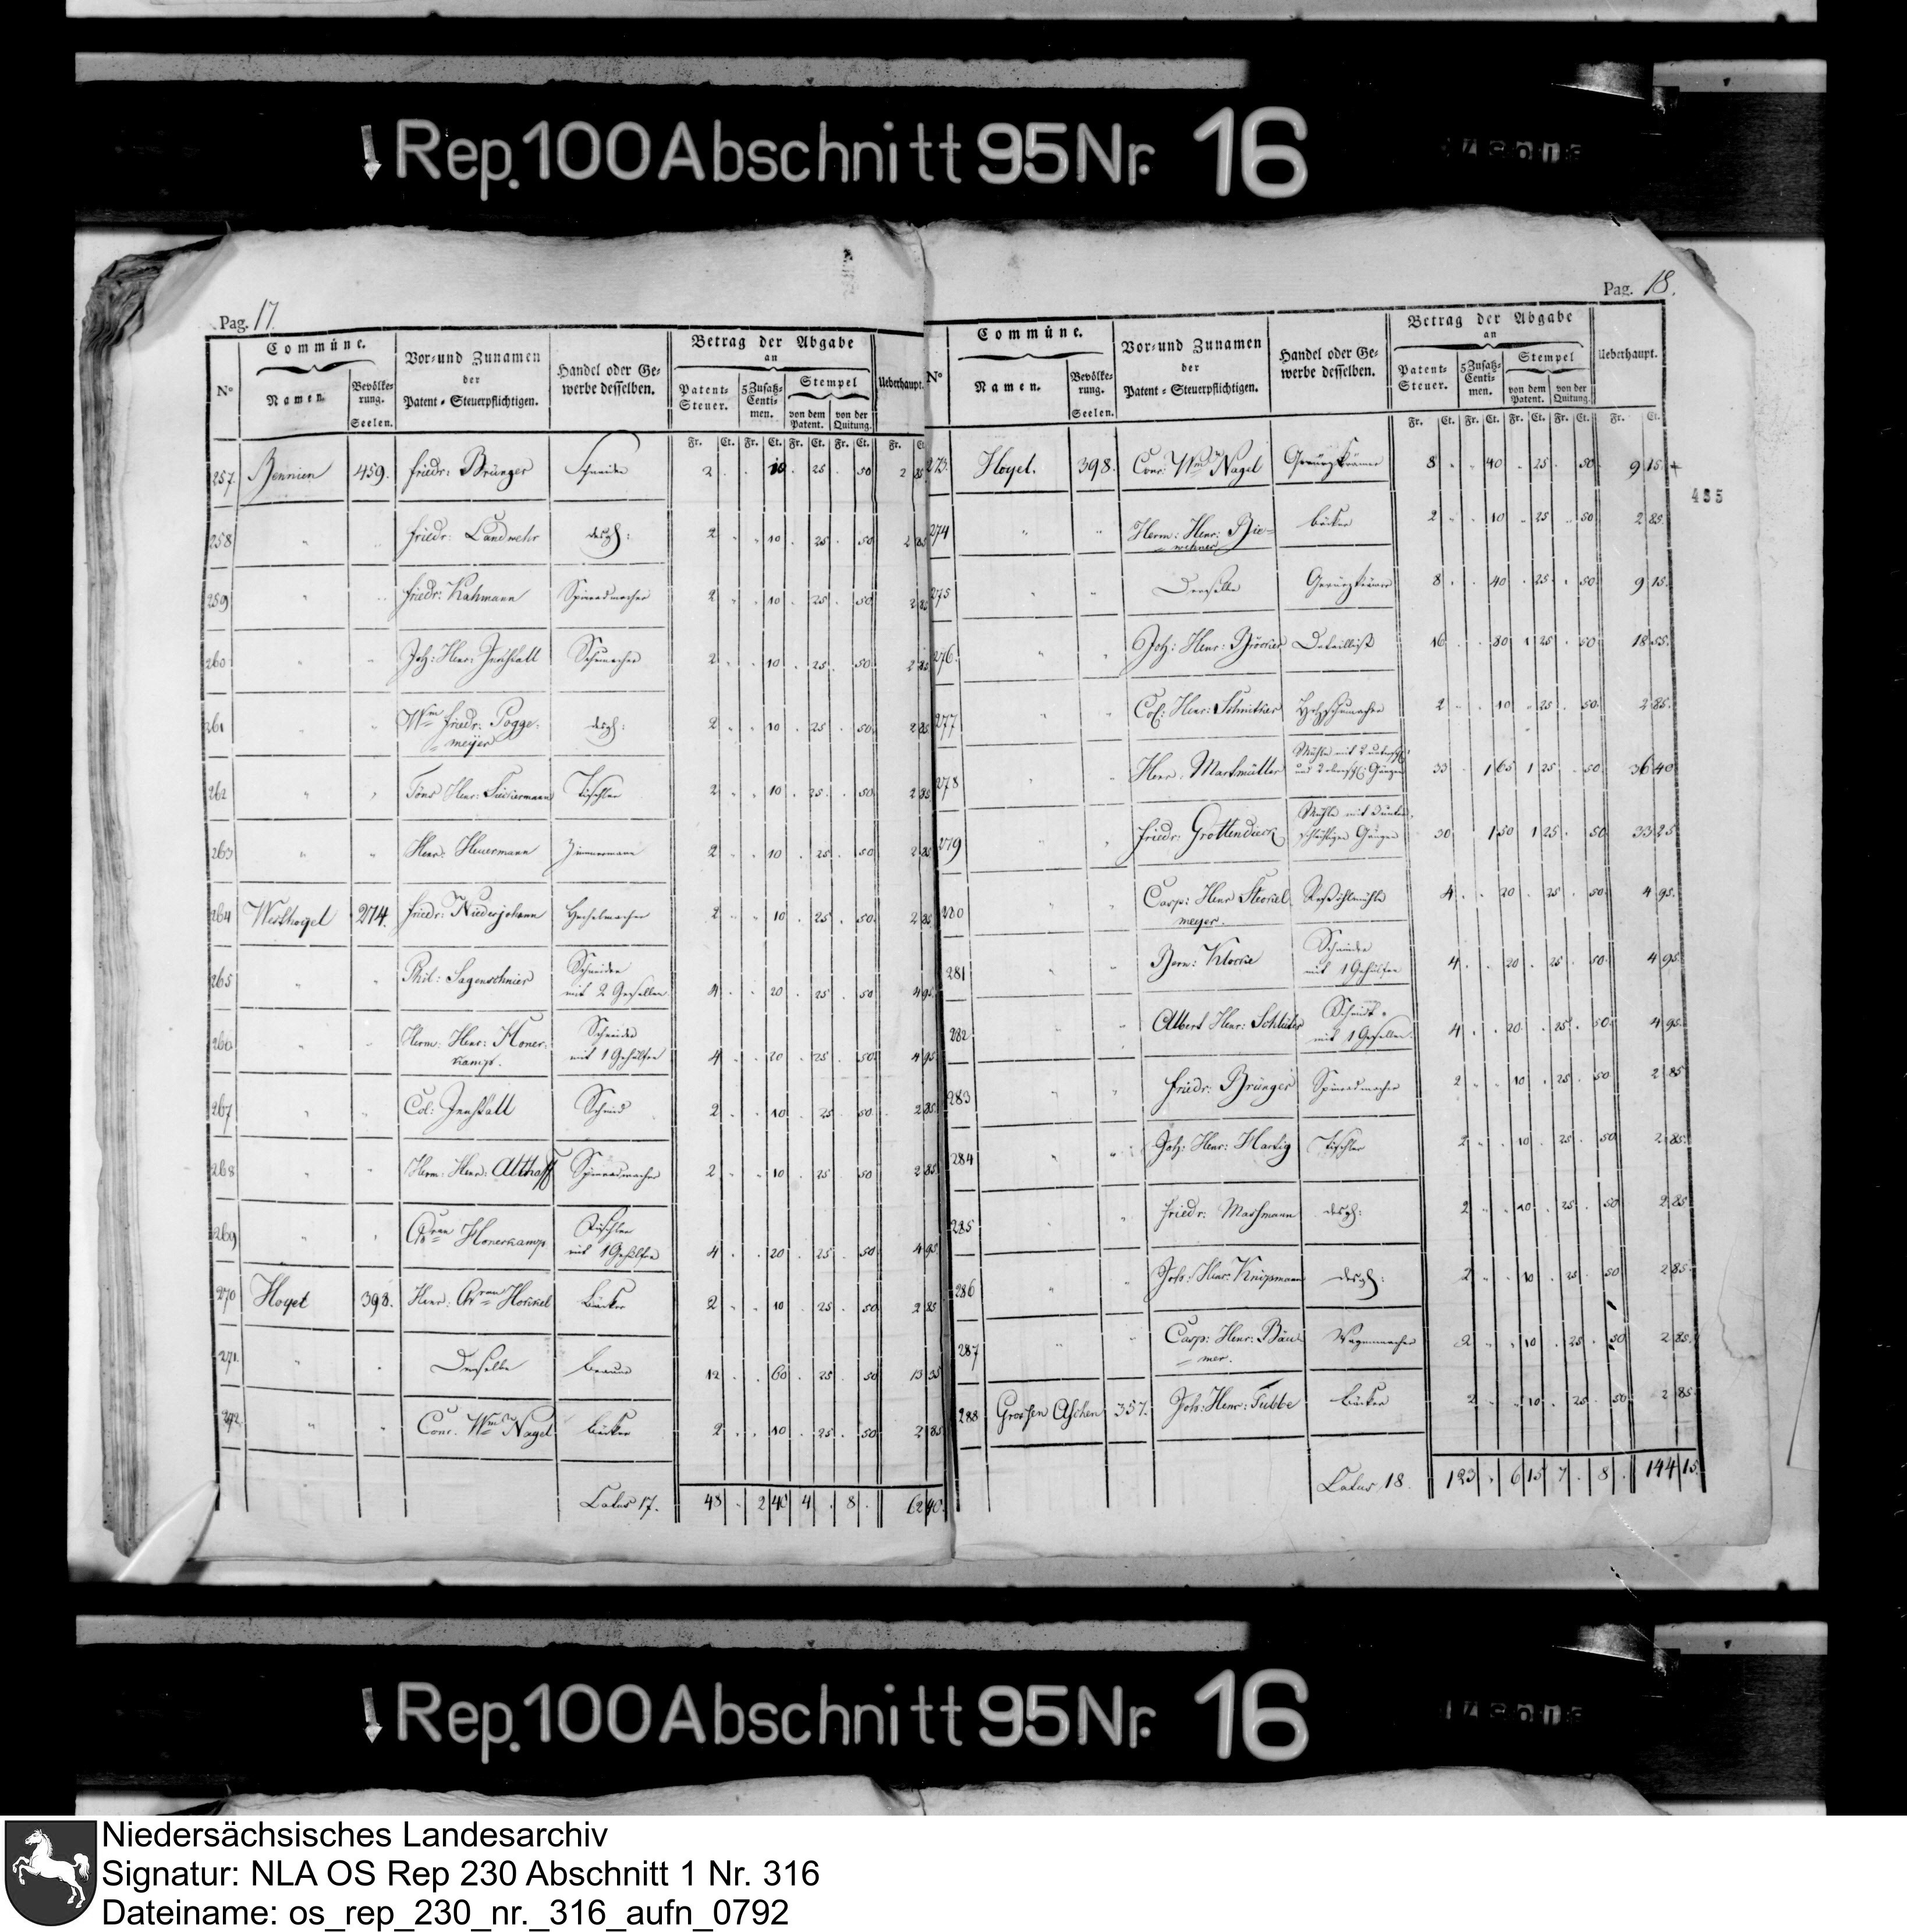 Rep. 100 Abschnitt 95 Nr. 16
Pag. 17.
N° Commüne. Vor- und Zunamen der Patent-Steuerpflichtigen. Handel oder Gewerbe desselben. Betrag der Abgabe an Ueberhaupt.
Namen. Bevölkerung. Seelen. Patent-Steuer. 5 Zusatz-Centimen. Stempel von dem Patent. von der Quitung.
Fr. Ct. Fr. Ct. Fr. Ct. Fr. Ct. Fr. Ct.
257. Bennien 459. Friedr: Brünger Schneider 2 . . 10 . 25 . 50 2 85
258 " " Friedr: Landwehr desgl: 2 " " 10 . 25 . 50 2 85
259 " " Friedr: Kahmann Spinradmacher 2 " " 10 . 25 . 50 2 85
260 " " Joh: Henr: Schumacher 2 " " 10 . 25 . 50 2 85
261 " " Wm Friedr: Pogge-
meyer desgl: 2 " " 10 . 25 . 50 2 85
262 " " Töns Henr: Tischler 2 " " 10 . 25 . 50 2 85
263 " " Henr: Heuermann Zimmermann 2 " " 10 . 25 . 50 2 85
264 Westhoyel 274. Friedr: Niederjohann Hechelmacher 2 " " 10 . 25 . 50 2 85
265 " " Phil: Sagenschnier Schneider
mit 2 Gesellen 4 . . 20 . 25 . 50 4 95
266 " " Herm: Henr: Honer-
kamp. Schneider
mit 1 Gehülfen 4 . . 20 . 25 . 50 4 95
267 " " Col: Schmid 2 . . 10 . 25 . 50 2 85
268 " " Herm: Henr: Althoff Spinradmacher 2 . . 10 . 25 50 2 85
269 " " Honerkamp Tischler
mit 1 Gehülfen 4 . . 20 . 25 . 50 4 95
270 Hoyel 398. Henr: Hökel Bäcker 2 " " 10 . 25 . 50 2 85
271. " " Derselbe Brauer 12 . . 60 . 25 . 50 13 35
272 " " Conr. Wm Nagel Bäcker 2 . . 10 . 25 . 50 2 85
Latus 17. 48 . 2 40 4 . 8 . 62 40.
Pag. 18.
N° Commüne. Vor- und Zunamen der Patent-Steuerpflichtigen. Handel oder Gewerbe desselben. Betrag der Abgabe an Ueberhaupt.
Namen. Bevölkerung. Seelen. Patent-Steuer. 5 Zusatz-Centimen. Stempel von dem Patent. von der Quitung.
Fr. Ct. Fr. Ct. Fr. Ct. Fr. Ct. Fr. Ct.
273. Hoyel. 398. Conr: Wm Nagel Gewürzkrämer 8 . . 40 . 25 . 50 9 15. +
435
274 " " Herm: Henr: Bie-
wehner Bäcker 2 . . 10 . 25 . 50 2 85.
275 " " Derselbe Gewürzkrämer 8 . . 40 . 25 . 50 9 15.
276. " " Joh: Henr: Bröcker Detaillist 16 . . 80 1 25 . 50 18 55.
277 " " Col: Henr: Schnitker Holzschumacher 2 . . 10 . 25 . 50 2 85.
278 " " Henr. Markmüller Mühle mit 2 unterschl:
und 2 oberschl: Gängen 33 1 65 1 25 . 50 36 40
279 " " Friedr. Grottendieck Mühle mit 3 unter-
schlächtigen Gängen 30 1 50 1 25 . 50 33 25
280 " " Casp: Henr Stockel
meyer. Roßöhlmühle 4 . . 20 . 25 . 50 4 95.
281 " " Bern: Klocke Schneider
mit 1 Gehülfen 4 . . 20 . 25 . 50 4 95
282 " " Albert Henr: Schlüter Schmidt
mit 1 Gesellen. 4 . . 20 . 25 . 50 4 95.
283 " " Friedr: Brünger Spinradmacher 2 . . 10 . 25 . 50 2 85
284 " " Joh: Henr: Hartig Tischler 2 . . 10 . 25 . 50 2 85.
285 " " Friedr: Marsmann desgl: 2 . . 10 . 25 . 50 2 85
286 " " Joh: Henr: Knipsmann desgl: 2 . . 10 . 25 . 50 2 85.
287 " " Casp: Henr: Bäu-
mer. Wagenmacher 2 . . 10 . 25 . 50 2 85.
288 Grossen Aschen 357. Joh: Henr: Tubbe Bäcker 2 . . 10 . 25 . 50 2 85
Latus 18. 123 . 6 15 7 . 8 . 144 15.
Rep. 100 Abschnitt 95 Nr. 16
Niedersächsisches Landesarchiv
Signatur: NLA OS Rep 230 Abschnitt 1 Nr. 316
Dateiname: os_rep_230_nr._316_aufn_0792